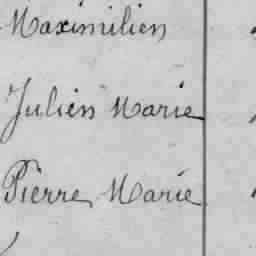 Maximilien
Julien Marie
Pierre Marie